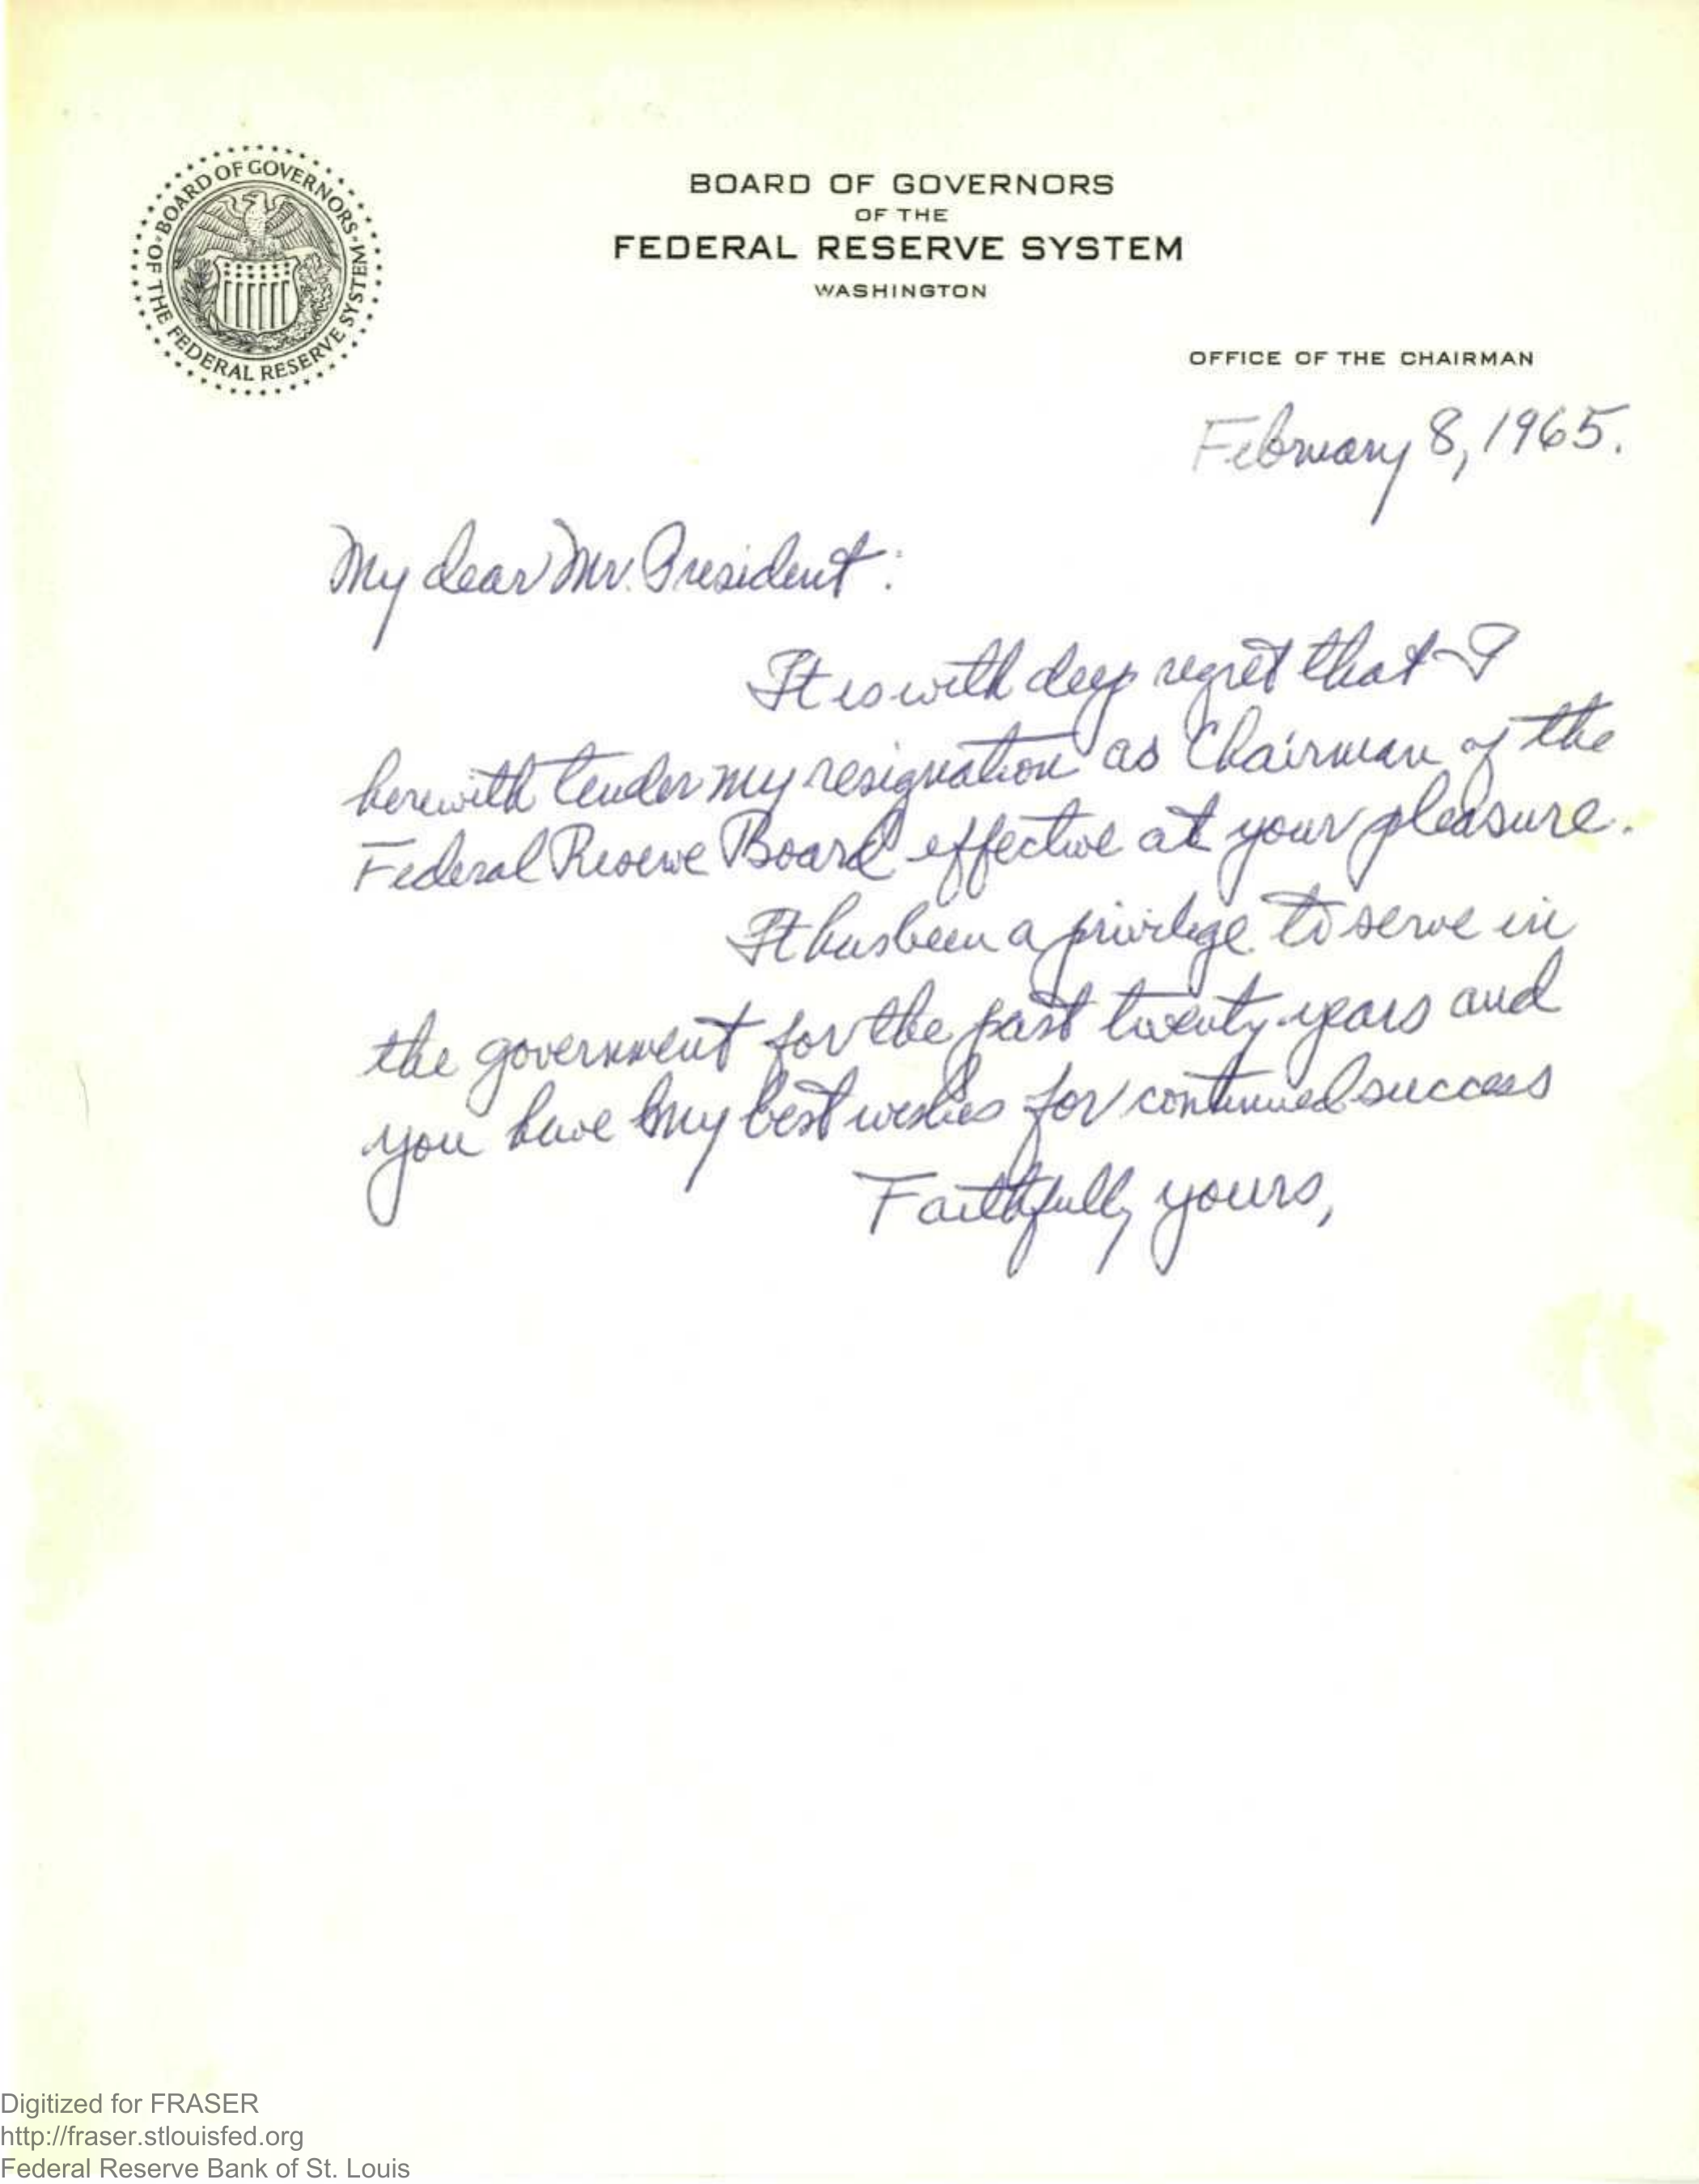 BOARD OF GOVERNORS OF THE FEDERAL RESERVE SYSTEM
BOARD OF GOVERNORS
OF THE
FEDERAL RESERVE SYSTEM
WASHINGTON
OFFICE OF THE CHAIRMAN
February 8, 1965.
My dear Mr. President:
It is with deep regret that I
herewith tender my resignation as Chairman of the
Federal Reserve Board effective at your pleasure.
It has been a privilege to serve in
the government for the past twenty years and
you have my best wishes for continued success
Faithfully yours,
Digitized for FRASER
http://fraser.stlouisfed.org
Federal Reserve Bank of St. Louis